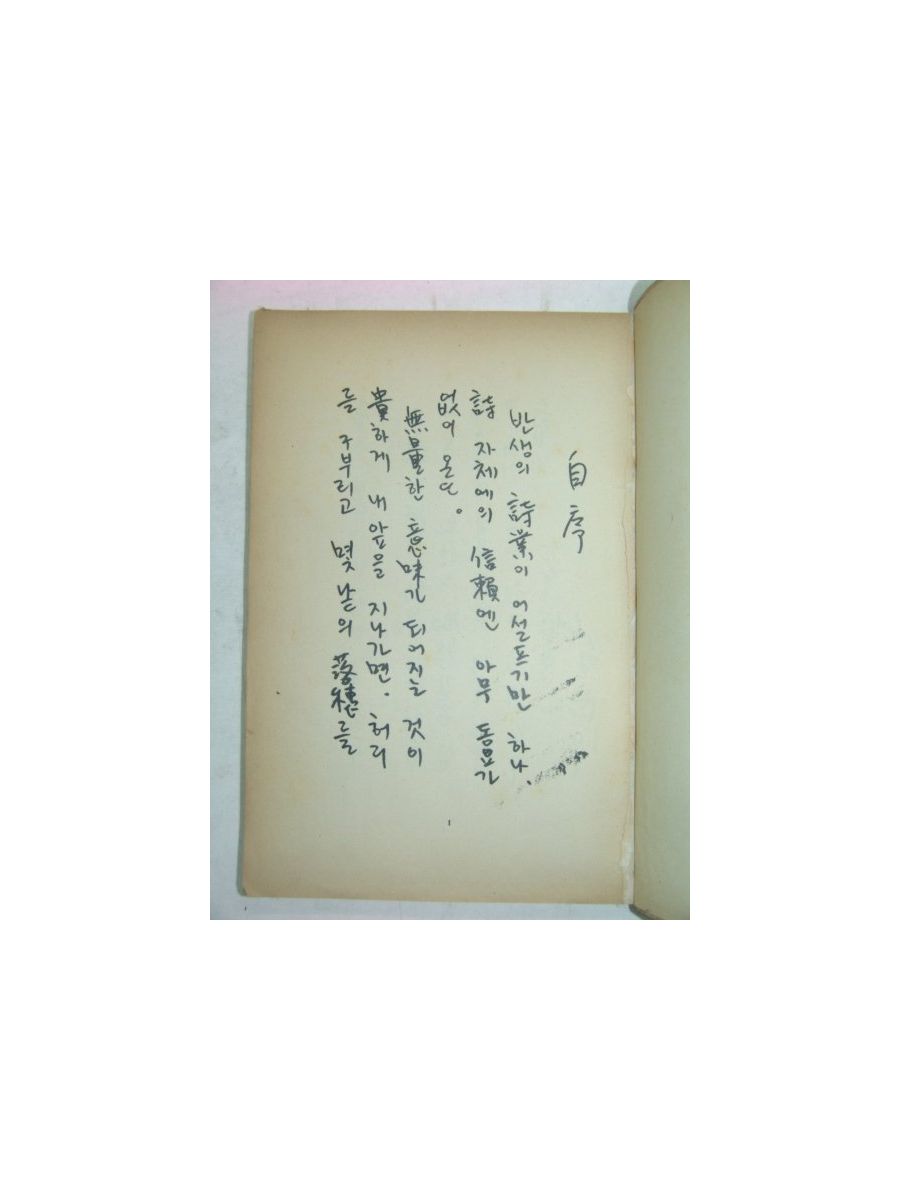 自序
반생의 詩業이 어설프기만 하나.
詩 자체에의 信賴엔 아무 동요가
없이 온다.
無量한 意味가 되어질 것이
貴하게 내 앞을 지나가면. 허리
를 구부리고 몇 낱의 落穗를
1